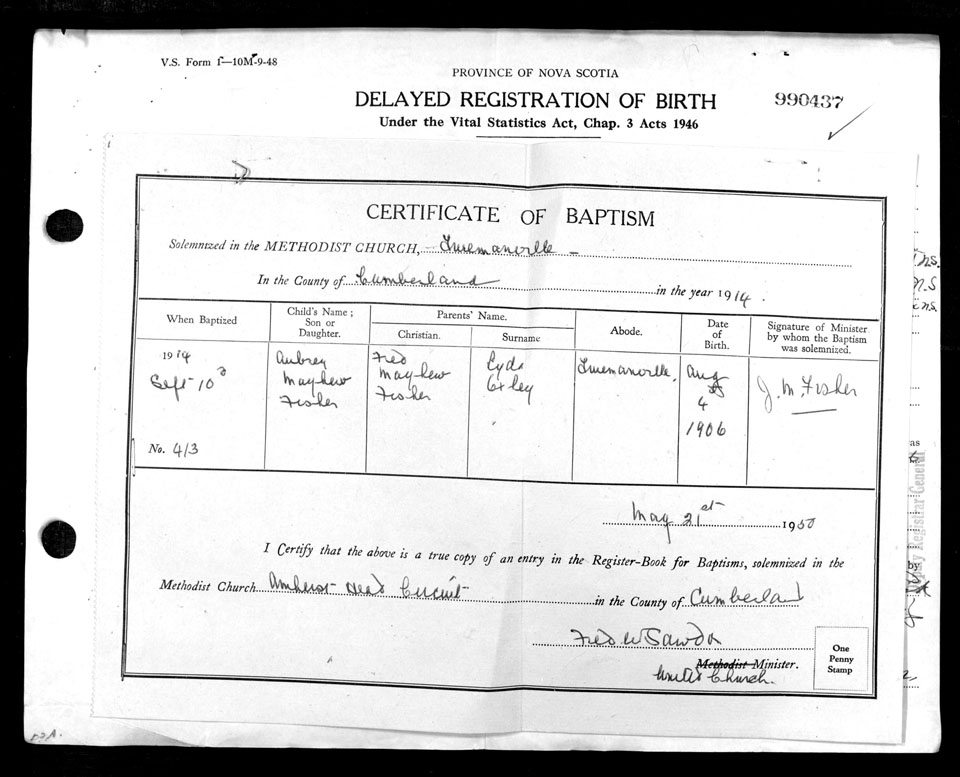 V.S. Form 1—10M-9-48
PROVINCE OF NOVA SCOTIA
DELAYED REGISTRATION OF BIRTH
990437
Under the Vital Statistics Act, Chap. 3 Acts 1946
CERTIFICATE OF BAPTISM
Solemnized in the METHODIST CHURCH, Truemanville
In the County of Cumberland in the year 1914.
When Baptized
Child's Name; Son or Daughter.
Parents' Name.
Christian.
Surname
Abode.
Date of Birth.
Signature of Minister by whom the Baptism was solemnized.
1914
Sept 10
No. 413
Aubrey
Mayhew
Fisher
Fred
Mayhew
Fisher
Exley
Truemanville,
Aug
4
1906
J. M. Fisher
May 21st 1950
I Certify that the above is a true copy of an entry in the Register-Book for Baptisms, solemnized in the
Methodist Church Amherst Head Circuit in the County of Cumberland
Fred W Sawdon
Methodist Minister.
United Church.
One
Penny
Stamp
ns.
N.S
ns.
as
Deputy Registrar General
by